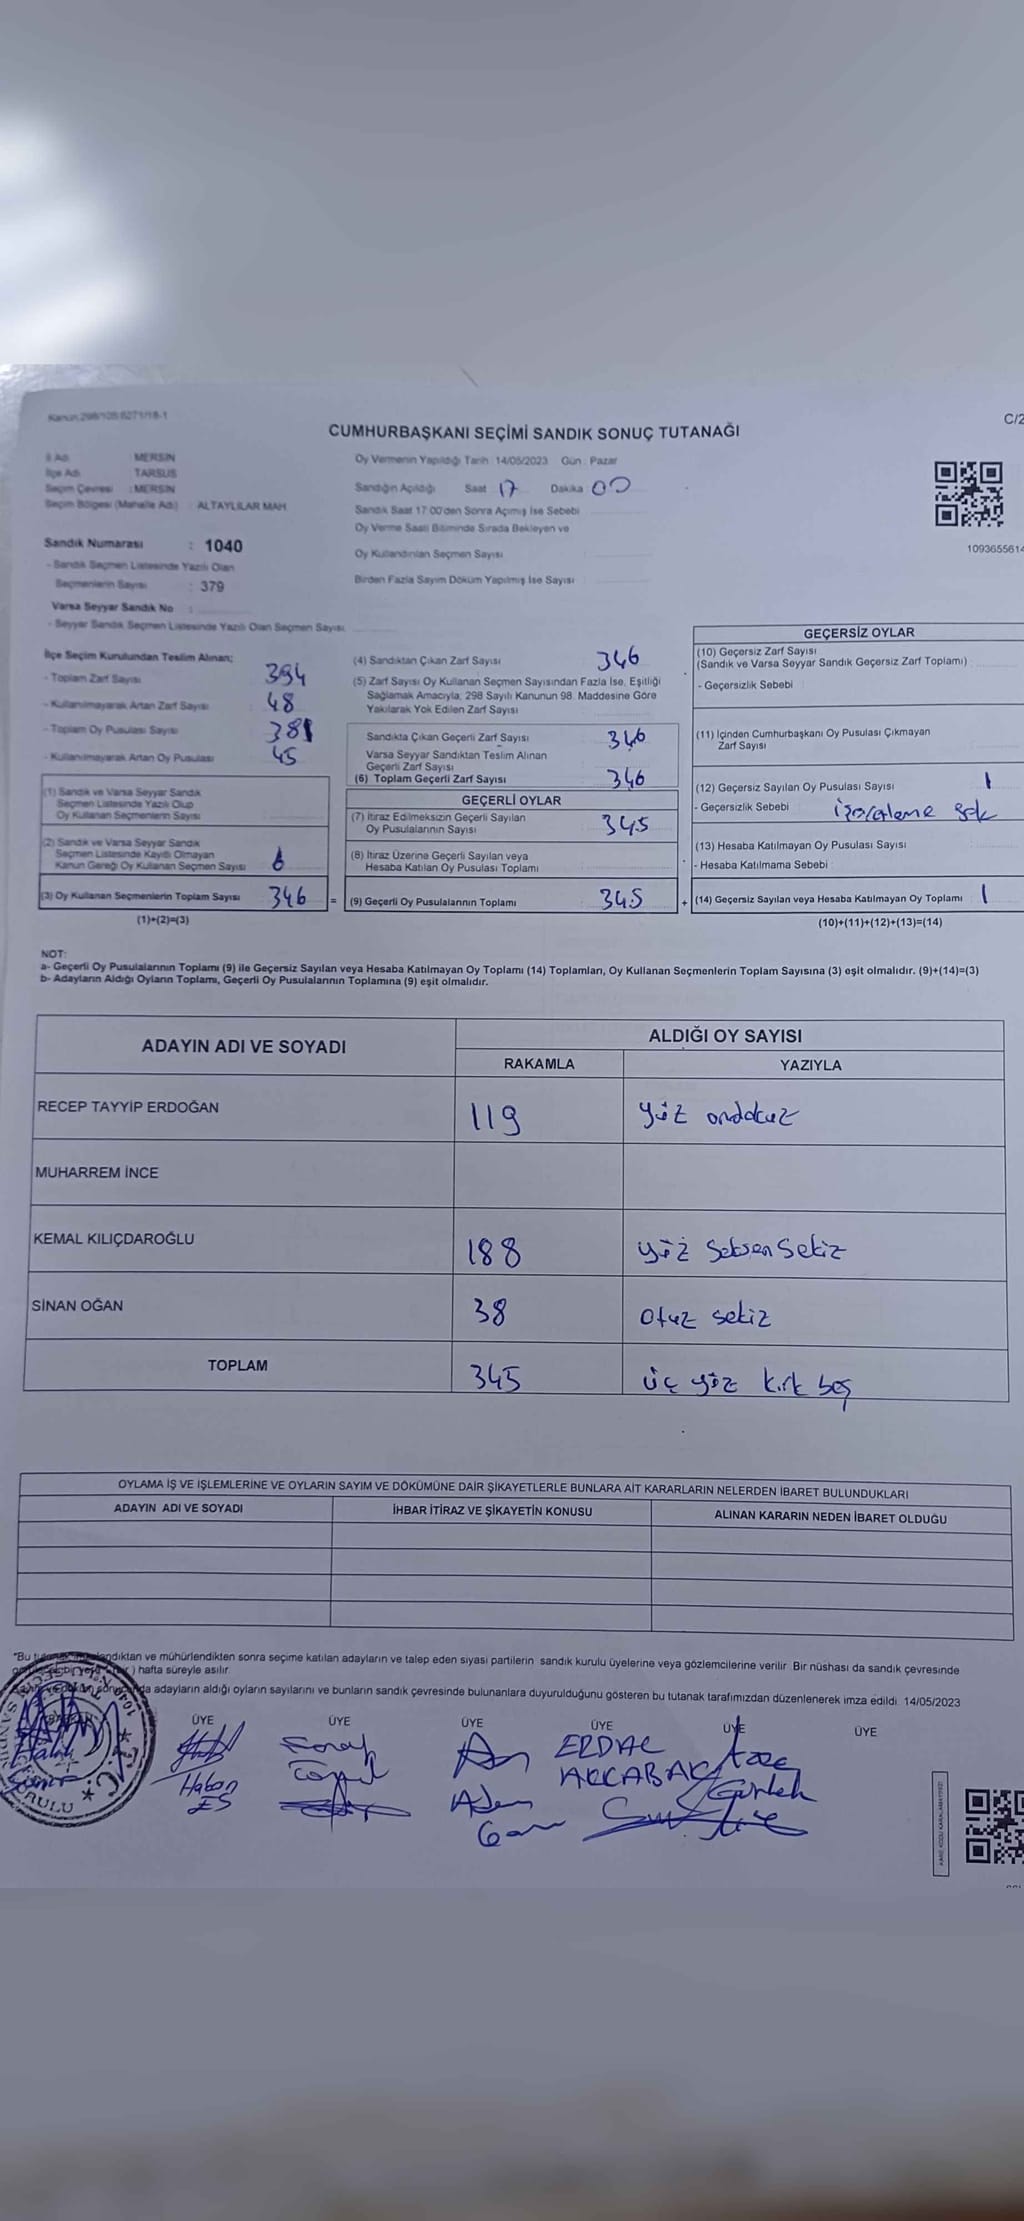 Kanun:298/105 6271/18-1
C/2
CUMHURBAŞKANI SEÇİMİ SANDIK SONUÇ TUTANAĞI
İl Adı : MERSİN
İlçe Adı : TARSUS
Seçim Çevresi : MERSİN
Seçim Bölgesi (Mahalle Adı) : ALTAYLILAR MAH.
Sandık Numarası : 1040
- Sandık Seçmen Listesinde Yazılı Olan
Seçmenlerin Sayısı : 379
Varsa Seyyar Sandık No :
- Seyyar Sandık Seçmen Listesinde Yazılı Olan Seçmen Sayısı
Oy Vermenin Yapıldığı Tarih : 14/05/2023 Gün : Pazar
Sandığın Açıldığı Saat 17 Dakika 00
Sandık Saat 17:00'den Sonra Açımış İse Sebebi
Oy Verme Saati Bitiminde Sırada Bekleyen ve
Oy Kullandırılan Seçmen Sayısı
Birden Fazla Sayım Döküm Yapılmış İse Sayısı
1093655614
İlçe Seçim Kurulundan Teslim Alınan;
- Toplam Zarf Sayısı 394
- Kullanılmayarak Artan Zarf Sayısı 48
- Toplam Oy Pusulası Sayısı 381
- Kullanılmayarak Artan Oy Pusulası 45
(1) Sandık ve Varsa Seyyar Sandık
Seçmen Listesinde Yazılı Olup
Oy Kullanan Seçmenlerin Sayısı
(2) Sandık ve Varsa Seyyar Sandık
Seçmen Listesinde Kayıtlı Olmayan
Kanun Gereği Oy Kullanan Seçmen Sayısı
(3) Oy Kullanan Seçmenlerin Toplam Sayısı 346
(1)+(2)=(3)
=
(4) Sandıktan Çıkan Zarf Sayısı 346
(5) Zarf Sayısı Oy Kullanan Seçmen Sayısından Fazla İse, Eşitliği
Sağlamak Amacıyla, 298 Sayılı Kanunun 98. Maddesine Göre
Yakılarak Yok Edilen Zarf Sayısı
Sandıkta Çıkan Geçerli Zarf Sayısı 346
Varsa Seyyar Sandıktan Teslim Alınan
Geçerli Zarf Sayısı
(6) Toplam Geçerli Zarf Sayısı 346
GEÇERLİ OYLAR
(7) İtiraz Edilmeksizin Geçerli Sayılan
Oy Pusulalarının Sayısı 345
(8) İtiraz Üzerine Geçerli Sayılan veya
Hesaba Katılan Oy Pusulası Toplamı
(9) Geçerli Oy Pusulalarının Toplamı 345
+
GEÇERSİZ OYLAR
(10) Geçersiz Zarf Sayısı
(Sandık ve Varsa Seyyar Sandık Geçersiz Zarf Toplamı)
- Geçersizlik Sebebi
(11) İçinden Cumhurbaşkanı Oy Pusulası Çıkmayan
Zarf Sayısı
(12) Geçersiz Sayılan Oy Pusulası Sayısı 1
- Geçersizlik Sebebi
(13) Hesaba Katılmayan Oy Pusulası Sayısı
- Hesaba Katılmama Sebebi
(14) Geçersiz Sayılan veya Hesaba Katılmayan Oy Toplamı 1
(10)+(11)+(12)+(13)=(14)
NOT:
a- Geçerli Oy Pusulalarının Toplamı (9) ile Geçersiz Sayılan veya Hesaba Katılmayan Oy Toplamı (14) Toplamları, Oy Kullanan Seçmenlerin Toplam Sayısına (3) eşit olmalıdır. (9)+(14)=(3)
b- Adayların Aldığı Oyların Toplamı, Geçerli Oy Pusulalarının Toplamına (9) eşit olmalıdır.
ADAYIN ADI VE SOYADI
ALDIĞI OY SAYISI
RAKAMLA YAZIYLA
RECEP TAYYİP ERDOĞAN 119 yüz ondokuz
MUHARREM İNCE
KEMAL KILIÇDAROĞLU 188 yüz Seksen Sekiz
SİNAN OĞAN 38 Otuz sekiz
TOPLAM 345 üç yüz kırk beş
OYLAMA İŞ VE İŞLEMLERİNE VE OYLARIN SAYIM VE DÖKÜMÜNE DAİR ŞİKAYETLERLE BUNLARA AİT KARARLARIN NELERDEN İBARET BULUNDUKLARI
ADAYIN ADI VE SOYADI İHBAR İTİRAZ VE ŞİKAYETİN KONUSU ALINAN KARARIN NEDEN İBARET OLDUĞU
"Bu ve mühürlendikten sonra seçime katılan adayların ve talep eden siyasi partilerin sandık kurulu üyelerine veya gözlemcilerine verilir. Bir nüshası da sandık çevresinde
hafta süreyle asılır.
adayların aldığı oyların sayılarını ve bunların sandık çevresinde bulunanlara duyurulduğunu gösteren bu tutanak tarafımızdan düzenlenerek imza edildi. 14/05/2023
ÜYE ÜYE ÜYE ÜYE ÜYE ÜYE
ERDAL
AKCABAK
Adem